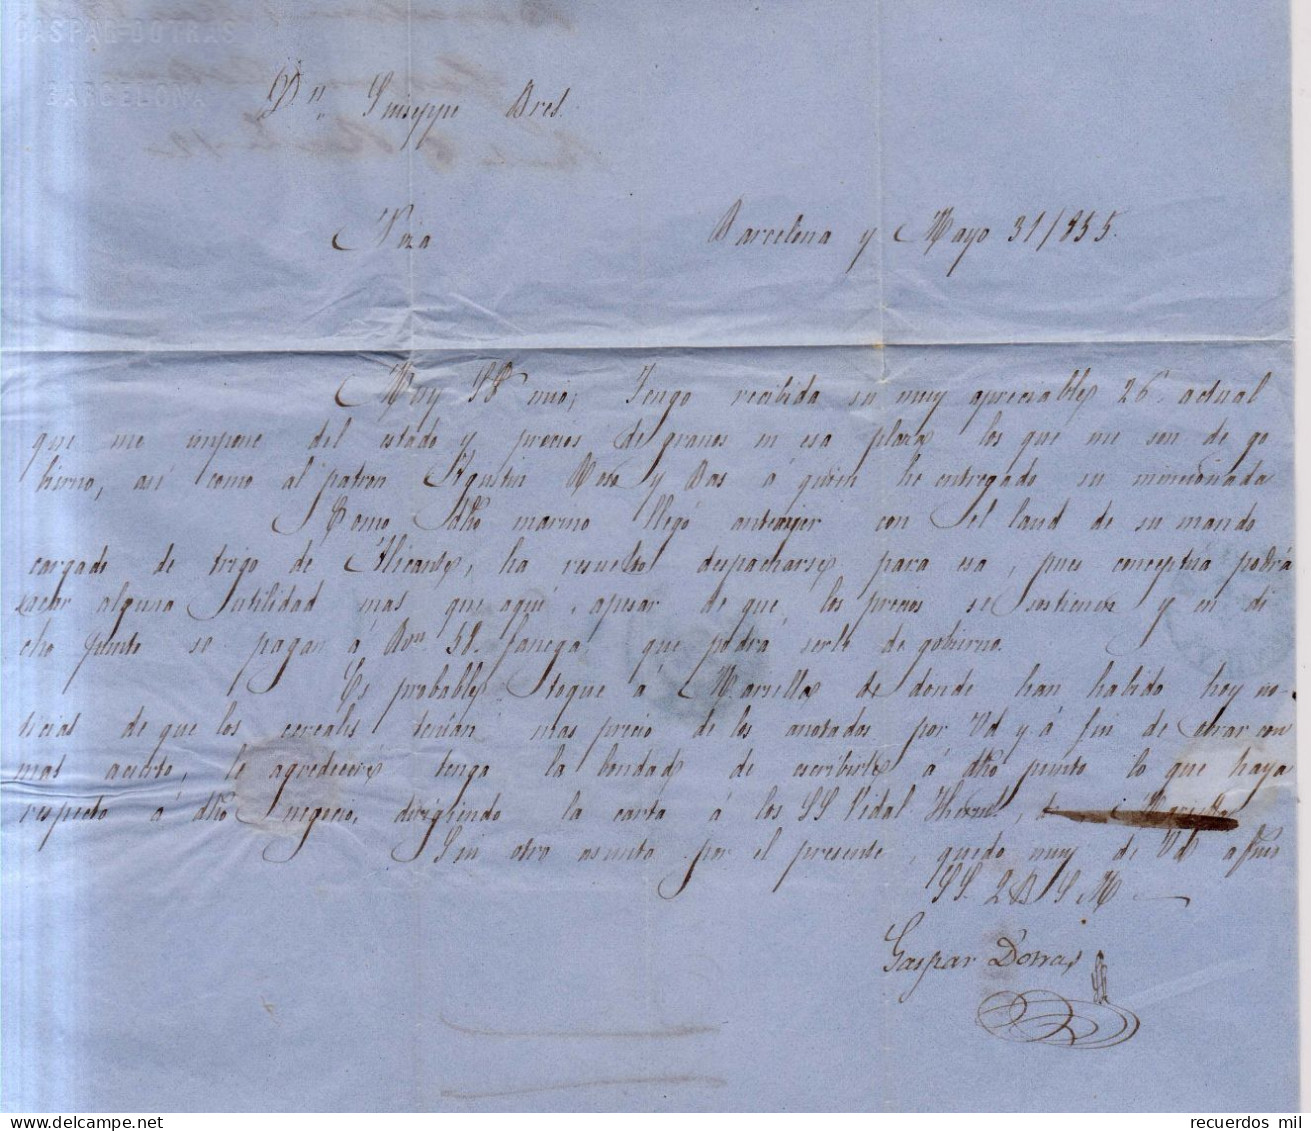 GASPAR DOTRAS
BARCELONA
Dn. Guiseppe Bres.
Niza
Barcelona y Mayo 31/855.
Muy Sr mio; Tengo recibida su muy apreciable 26 actual
que me impone del estado y precios de granos en esa plaza los que me son de go
bierno, así como al patron Agustin Rosa y Bas á quien he entregado su mencionada
Como dho marino llegó anteayer con el laud de su mando
cargado de trigo de Alicante, ha resuelto despacharse para esa, pues conceptua podrá
sacar alguna utilidad mas que aquí, apesar de que los precios se sostienen y en di
cho punto se pagan á Rvn 58. fanega que podrá serle de gobierno.
Es probable toque a Marsella de donde han habido hoy no-
ticias de que los cereales tenian mas precio de los anotados por Vd y á fin de obrar con
mas acierto, le agradeceré tenga la bondad de escribirle á dho punto lo que haya
respecto á dho negocio, dirigiendo la carta á los SS Vidal
Sin otro asunto por el presente, quedo muy de Vd affmo
SS. Q B S M
Gaspar Dotras
recuerdos mil